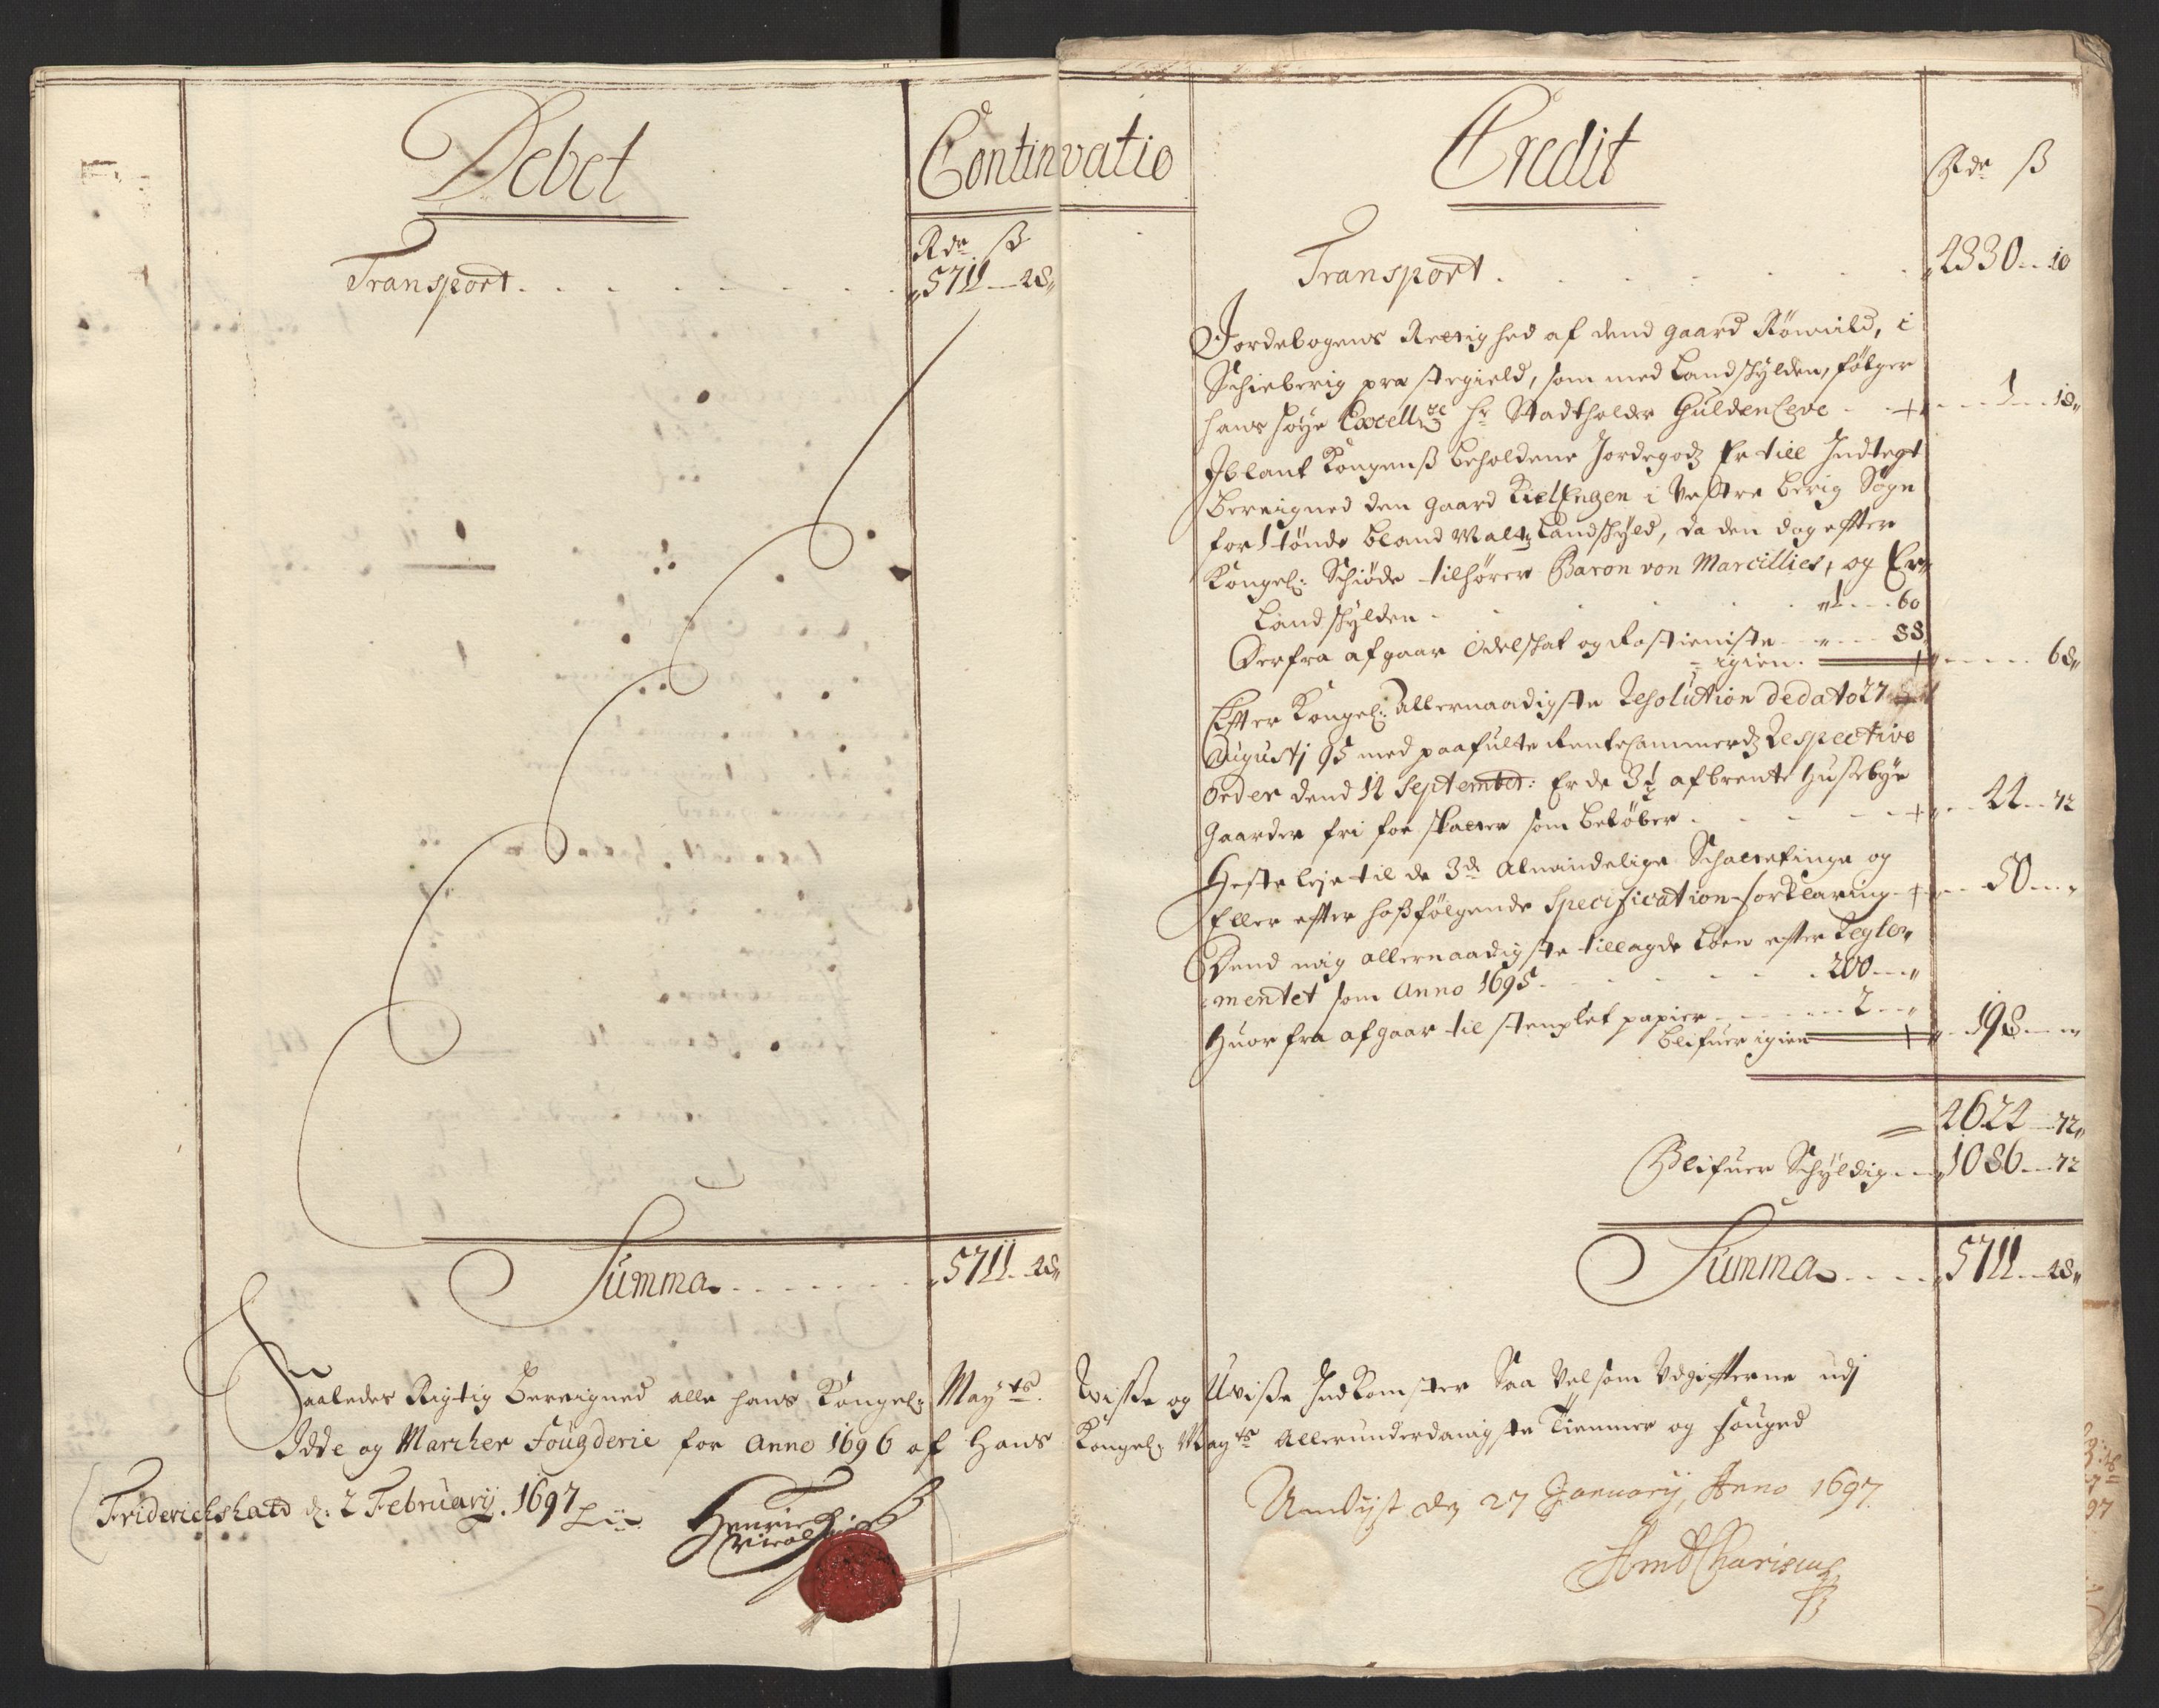 Debet
Continvatio
Rdr ß
Transport . . . . . . . . 5711 - 48
Summa . . . . . . . 5711 - 48
Credit
Rdr ß
Transport . . . . . . 4330 - 10
Jordebogens Rettighed af dend gaard Römuld, i
Schieberig præstegield, som med Landskylden, følger
hans høye Excell: Hr Stadtholder Güldenleve - + - 1 - 18
Iblant Kongenß beholdene Jordegodz Er till Indtegt
Bereigned den gaard KielEngen i Vestre Berig Sogn
for 1 tønde bland Malt Landskyld, da den dog efter
Kongel: Schiøde tilhører Baron von Marcillies, og Er
Landskylden - 1 - 60
Derfra afgaar Odelskat og Fostieniste - 88
igien - 68
Efter Kongel: Allernaadigste Resolution de dato 27
Augustj 95 med paafulte RenteCammerdz Respective
Order dend 11 September: Er de 3½ afbrente Husebye
Gaarder fri for skatter som beløber - + - 44 - 72
Heste leje til de 3de Almindelige Schattetinge og
Eller efter hoßfølgende Specification forklaring - + - 50 -
Dend mig allernaadigste tillagde Løen efter Regle-
mentet som Anno 1695 - 200 -
Huor fra afgaar til stemplet papier - 2 -
Blifuer igien - + - 198 -
4624 - 72
Blifuer Schyldig - 1086 - 72
Summa . . . . 5711 - 48
Saaledes Rigtig Bereigned alle hans Kongel: Mayts. Wisse og Uvisse Indkomster Saa Vel som Udgifterne udj
Idde og Marcher Fougderie for Anno 1696 af Hans Kongel: Mayts Allerunderdanigste Tienner og fouged
Friderichshald d: 2 February. 1697
Henrich
Undlyst den 27 January, Anno 1697.